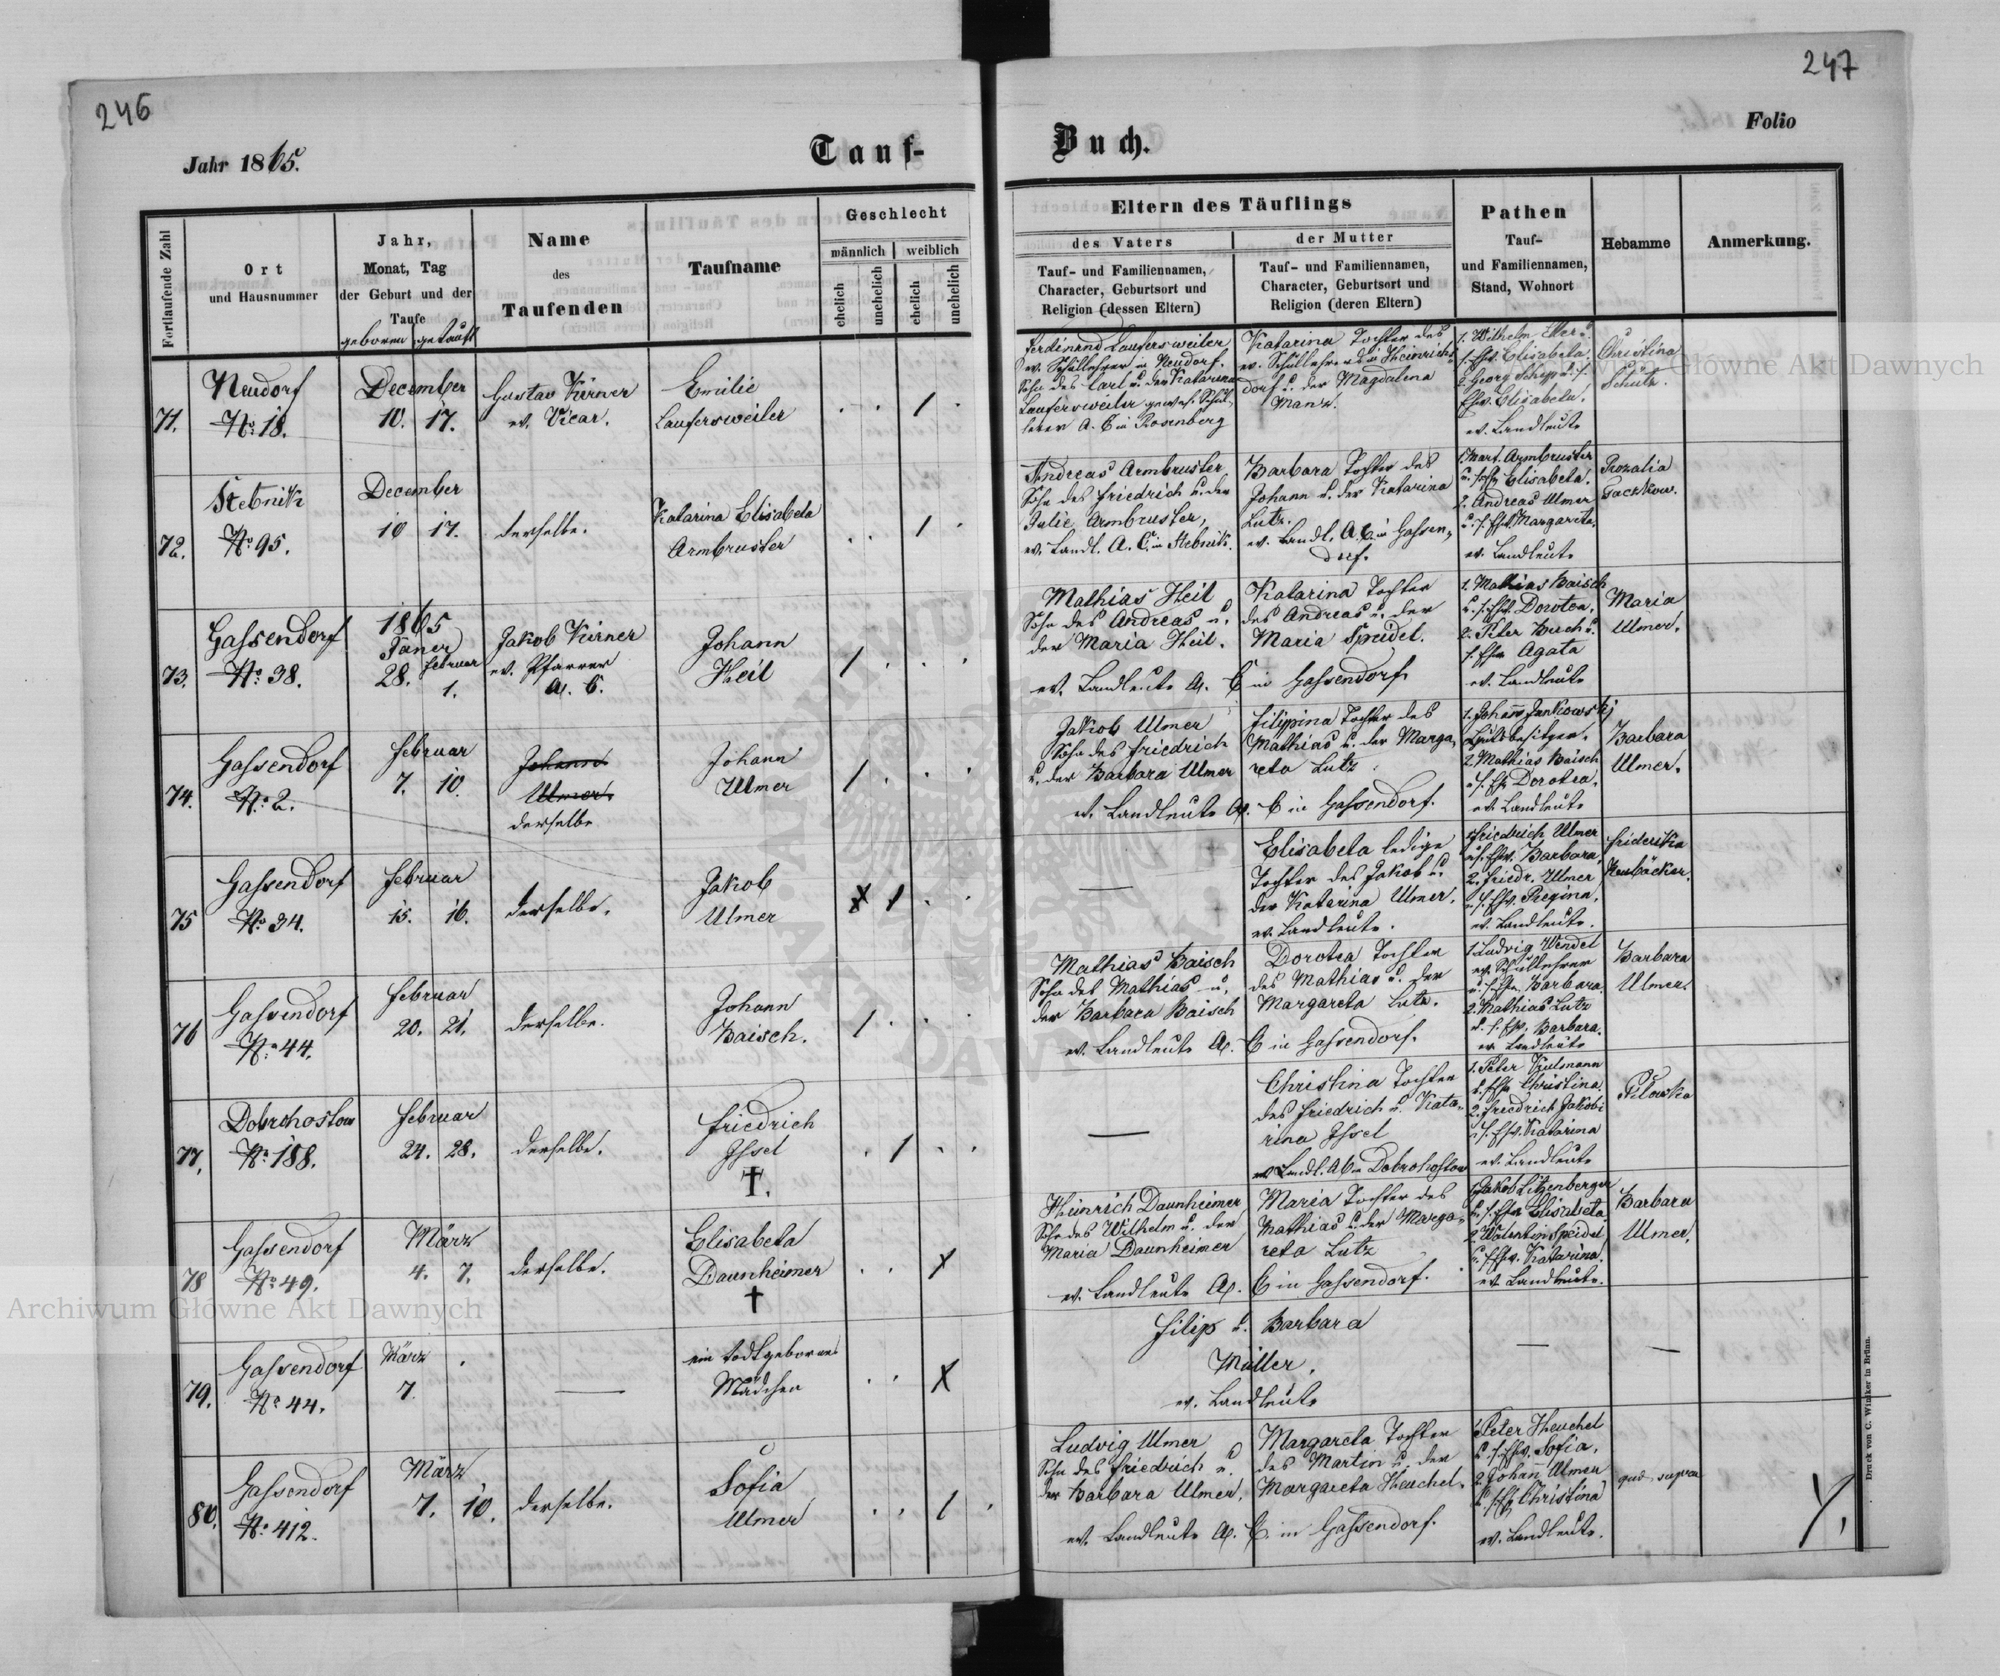 246
Jahr 1865.
Tauf-
Fortlaufende Zahl
Ort
und Hausnummer
Jahr,
Monat, Tag
der Geburt und der
Taufe
geboren getauft
Name
des
Taufenden
Taufname
Geschlecht
männlich
weiblich
ehelich
unehelich
ehelich
unehelich
71.
Neudorf
No 18.
December
10. 17.
Gustav Kirner
ev. Vicar.
Emilie
Laufersweiler
. . / .
72.
Stebnik
No 95.
December
10 17.
derselbe.
Katarina Elisabeta
Armbruster
. . / .
73.
Gassendorf
No 38.
1865
Jäner
28. Februar
1.
Jakob Kirner
ev. Pfarrer
A. C.
Johann
Heil
/ . . .
74.
Gassendorf
No 2.
Februar
7. 10.
Johann
Ulmer.
derselbe
Johann
Ulmer
/ . . .
75
Gassendorf
No 34.
Februar
15. 16.
derselbe.
Jakob
Ulmer
/ . .
76
Gassendorf
No 44.
Februar
20. 21.
derselbe.
Johann
Baisch.
/ . . .
77.
Dobrohostow
No 188.
Februar
24. 28.
derselbe.
Friedrich
Issel
†.
. / . .
78
Gassendorf
No 49.
März
4. 7.
derselbe.
Elisabeta
Daunheimer
†
. . X
79.
Gassendorf
No 44.
März
7.
—
ein todtgebornes
Mädchen
. . X
80.
Gassendorf
No 412.
März
7. 10.
derselbe.
Sofia
Ulmer
. . / .
Archiwum Główne Akt Dawnych
247
Buch.
Folio
Eltern des Täuflings
des Vaters
Tauf- und Familiennamen,
Character, Geburtsort und
Religion (dessen Eltern)
der Mutter
Tauf- und Familiennamen,
Character, Geburtsort und
Religion (deren Eltern)
Pathen
Tauf-
und Familiennamen,
Stand, Wohnort
Hebamme
Anmerkung.
Ferdinand Laufersweiler
ev. Schullehrer in Neudorf.
Sohn des Carl u. der Katarina
Laufersweiler gewes. Schul-
lehrer A. C in Rosenberg
Katarina Tochter des
ev. Schullehrers in Heinrichs-
dorf u. der Magdalena
Manz.
1. Wilhelm
s. Ehw. Elisabeta.
2. Georg Schepp u. s.
Ehw. Elisabeta.
ev. Landleute
Christina
Schutz.
Andreas Armbruster.
Sohn des Friedrich u. der
Julie Armbruster,
ev. Landl. A. C. in Stebnik.
Barbara Tochter des
Johann u. der Katarina
Lutz.
ev. Landl. A. C in Gassen-
dorf.
1. Mart. Armbruster
u. s. Ehw. Elisabeta.
2. Andreas Ulmer
u. s. Ehw. Margareta.
ev. Landleute
Rozalia
Mathias Heil
Sohn des Andreas u.
der Maria Heil.
Katarina Tochter
des Andreas u. der
Maria Speidel.
ev. Landleute A. C in Gassendorf
1. Mathias Baisch
u. s. Ehw. Dorotea.
2. Peter Buch u.
s. Ehw. Agata
ev. Landleute
Maria
Ulmer.
Jakob Ulmer
Sohn des Friedrich
u. der Barbara Ulmer
Filippina Tochter des
Mathias u. der Marga-
reta Lutz.
ev. Landleute A. C in Gassendorf.
1. Johann Jankowskj
Gutsbesitzer.
2. Mathias Baisch
u. s. Ehw. Dorotea.
ev. Landleute
Barbara
Ulmer.
—
Elisabeta ledige
Tochter des Jakob u.
der Katarina Ulmer.
ev. Landleute.
1. Friedrich Ulmer
u. s. Ehw. Barbara.
2. Friedr. Ulmer
u. s. Ehw. Regina.
ev. Landleute.
Friderika
Neubäcker.
Mathias Baisch
Sohn des Mathias u.
der Barbara Baisch
Dorotea Tochter
des Mathias u. der
Margareta Lutz.
ev. Landleute A. C in Gassendorf.
1. Ludvig Wendel
ev. Schullehrer
u. s. Ehw. Barbara.
2. Mathias Lutz
u. s. Ehw. Barbara.
ev. Landleute
Barbara
Ulmer.
—
Christina Tochter
des Friedrich u. Kata-
rina Issel
ev. Landl. A C in Dobrohostow
1. Peter Kulmann
u. s. Ehw. Christina.
2. Friedrich Jakobi
u. s. Ehw. Katarina
ev. Landleute
Heinrich Daunheimer
Sohn des Wilhelm u. der
Maria Daunheimer
Maria Tochter des
Mathias u. der Marga-
reta Lutz
ev. Landleute A. C in Gassendorf.
1. Jakob Litzenberger
u. s. Ehw. Elisabeta
2. Valentin Speidel
u. s. Ehw. Katarina.
ev. Landleute.
Barbara
Ulmer.
Filip u. Barbara
Müller.
ev. Landleute
—
—
Ludvig Ulmer
Sohn des Friedrich u.
der Barbara Ulmer.
Margareta Tochter
des Martin u. der
Margareta Heuchel.
ev. Landleute A. C. in Gassendorf.
1. Peter Heuchel
u. s. Ehw. Sofia.
2. Johan Ulmer
u. s. Ehw. Christina
ev. Landleute.
quae supra
Główne Akt Dawnych
Druck von C. Winiker in Brünn.